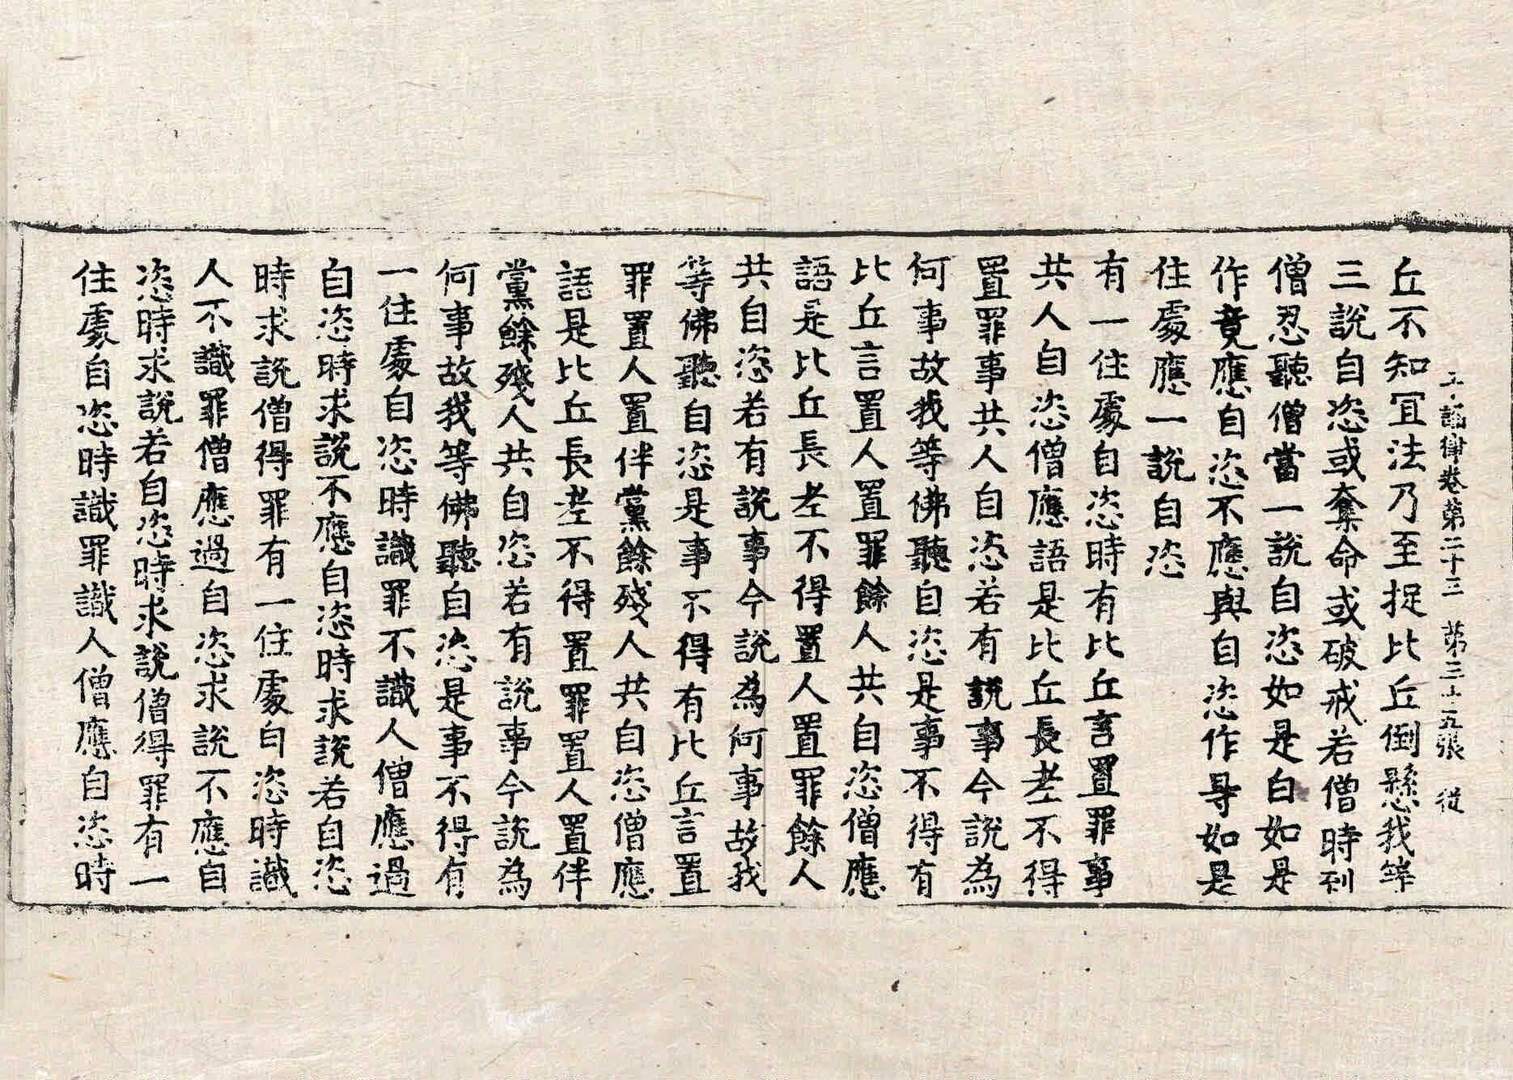 十誦律卷第二十三 第三十五張 從
丘不知冝法乃至捉比丘倒懸我等
三說自恣或奪命或破戒若僧時到
僧忍聽僧當一說自恣如是白如是
作竟應自恣不應與自恣作㝵如是
住處應一說自恣
有一住處自恣時有比丘言置罪事
共人自恣僧應語是比丘長老不得
置罪事共人自恣若有說事今說為
何事故我等佛聽自恣是事不得有
比丘言置人置罪餘人共自恣僧應
語是比丘長老不得置人置罪餘人
共自恣若有說事今說為何事故我
等佛聽自恣是事不得有比丘言置
罪置人置伴黨餘殘人共自恣僧應
語是比丘長老不得置罪置人置伴
黨餘殘人共自恣若有說事今說為
何事故我等佛聽自恣是事不得有
一住處自恣時識罪不識人僧應過
自恣時求說不應自恣時求說若自恣
時求說僧得罪有一住處自恣時識
人不識罪僧應過自恣求說不應自
恣時求說若自恣時求說僧得罪有一
住處自恣時識罪識人僧應自恣時